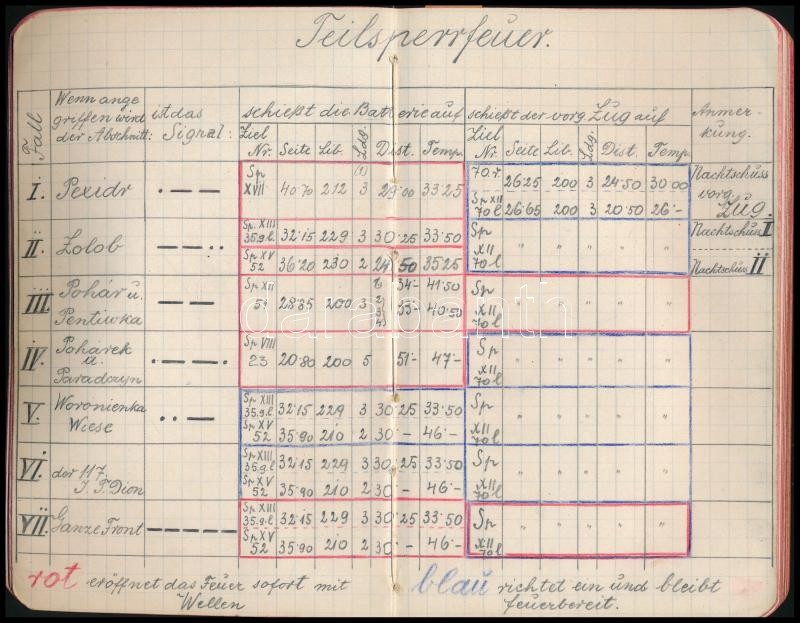 Teilsperrfeuer.
Fall | Wenn ange griffen wird der Abschnitt: | ist das Signal: | schießt die Batterie auf | schießt der vorg. Zug auf | Anmer- kung.
Ziel Nr. | Seite | Lib. | Ldg. | Dist. | Temp. | Ziel Nr. | Seite | Lib. | Ldg. | Dist. | Temp.
I. | Pexidr | · — — | Sp XVII | 40·70 | 212 | 3 (1) | 29·00 | 33·25 | 70.r. | 26·25 | 200 | 3 | 24·50 | 30·00 | Nachtschuss vorg. Zug.
Sp XII 70 l | 26·65 | 200 | 3 | 20·50 | 26·-
II. | Zolob | — — · · | Sp. XIII 35.g.l. | 32·15 | 229 | 3 | 30·25 | 33·50 | Sp XII 70.l | " | " | " | " | " | Nachtschuss I
Sp XV 52 | 36·20 | 230 | 2 | 24·50 | 35·25 | Nachtschuss II
III. | Pohár u. Pentiwka | — — | Sp XII | 28·85 | 200 | 34·- | 41·50 | Sp XII 70 l | " | " | " | " | "
40·50
IV. | Pohárek u. Paradczyn | · — — · | Sp VIII 23 | 20·80 | 200 | 5 | 51·- | 47·- | Sp XII 70 l | " | " | " | " | "
V. | Woronienka Wiese | · · — | Sp XIII 35.g.l | 32·15 | 229 | 3 | 30·25 | 33·50 | Sp XII 70 l | " | " | " | " | "
Sp XV 52 | 35·90 | 210 | 2 | 30·- | 46·-
VI. | der 117. J. T. Dion | Sp XIII 35.g.l | 32·15 | 229 | 3 | 30·25 | 33·50 | Sp XII 70.l | " | " | " | " | "
Sp XV 52 | 35·90 | 210 | 2 | 30·- | 46·-
VII. | Ganze Front | — — — — — | Sp XIII 35.g.l | 32·15 | 229 | 3 | 30·25 | 33·50 | Sp XII 70 l | " | " | " | " | "
Sp XV 52 | 35·90 | 210 | 2 | 30·- | 46·-
rot eröffnet das Feuer sofort mit Wellen
blau richtet ein und bleibt feuerbereit.
darabanth